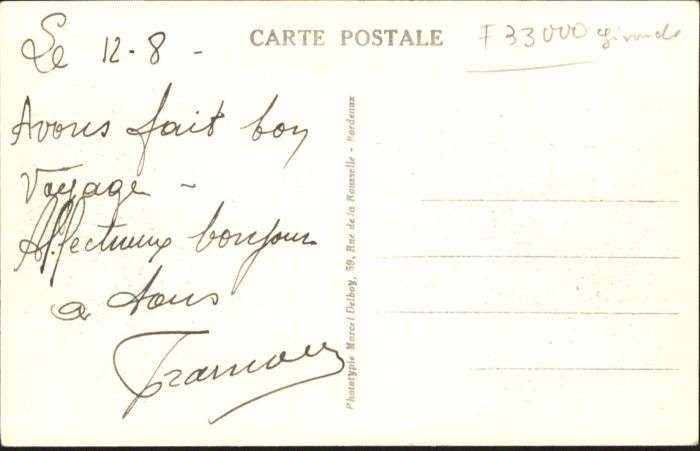 Le 12-8 -
CARTE POSTALE
F 33000 Gironde
Avons fait bon
Voyage -
Affectueux bonjour
a tous
Phototypie Marcel Delboy, 59, Rue de la Rousselle - Bordeaux